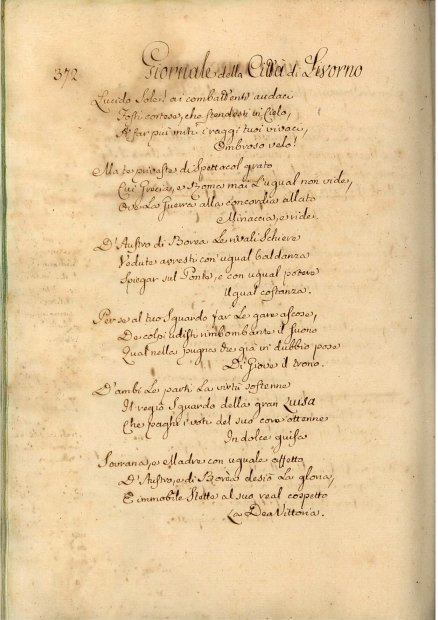 372 Giornale della Città di Livorno
Lucido Sole! ai combattenti audaci
Fosti cortese, che stendesti in Cielo,
A far più miti i raggi tuoi vivaci,
Ombroso velo!
Ma te privaste di Spettacol grato
Cui Grecia, e Roma mai l'ugual non vide,
Ove La Guerra alla concordia allato
Minaccia, e ride.
D'Austro di Borea Le rivali Schiere
Vedute avresti con ugual baldanza
Spiegar sul Ponte, e con ugual potere
Ugual costanza.
Perse al tuo Sguardo far Le gare ascose,
De colpi udisti rimbombante il suono
Qual nella pugna che già in dubbio pose
Di Giove il trono.
D'ambi Le parti La virtù sostenne
Il regio Sguardo della gran Luisa
Che paghi i voti del suo core ottenne
In dolce guisa
Sovrana, e Madre con uguale affetto
D'Austro, e di Borea desiò La gloria,
E immobile Stette al suo real cospetto
La Dea Vittoria.